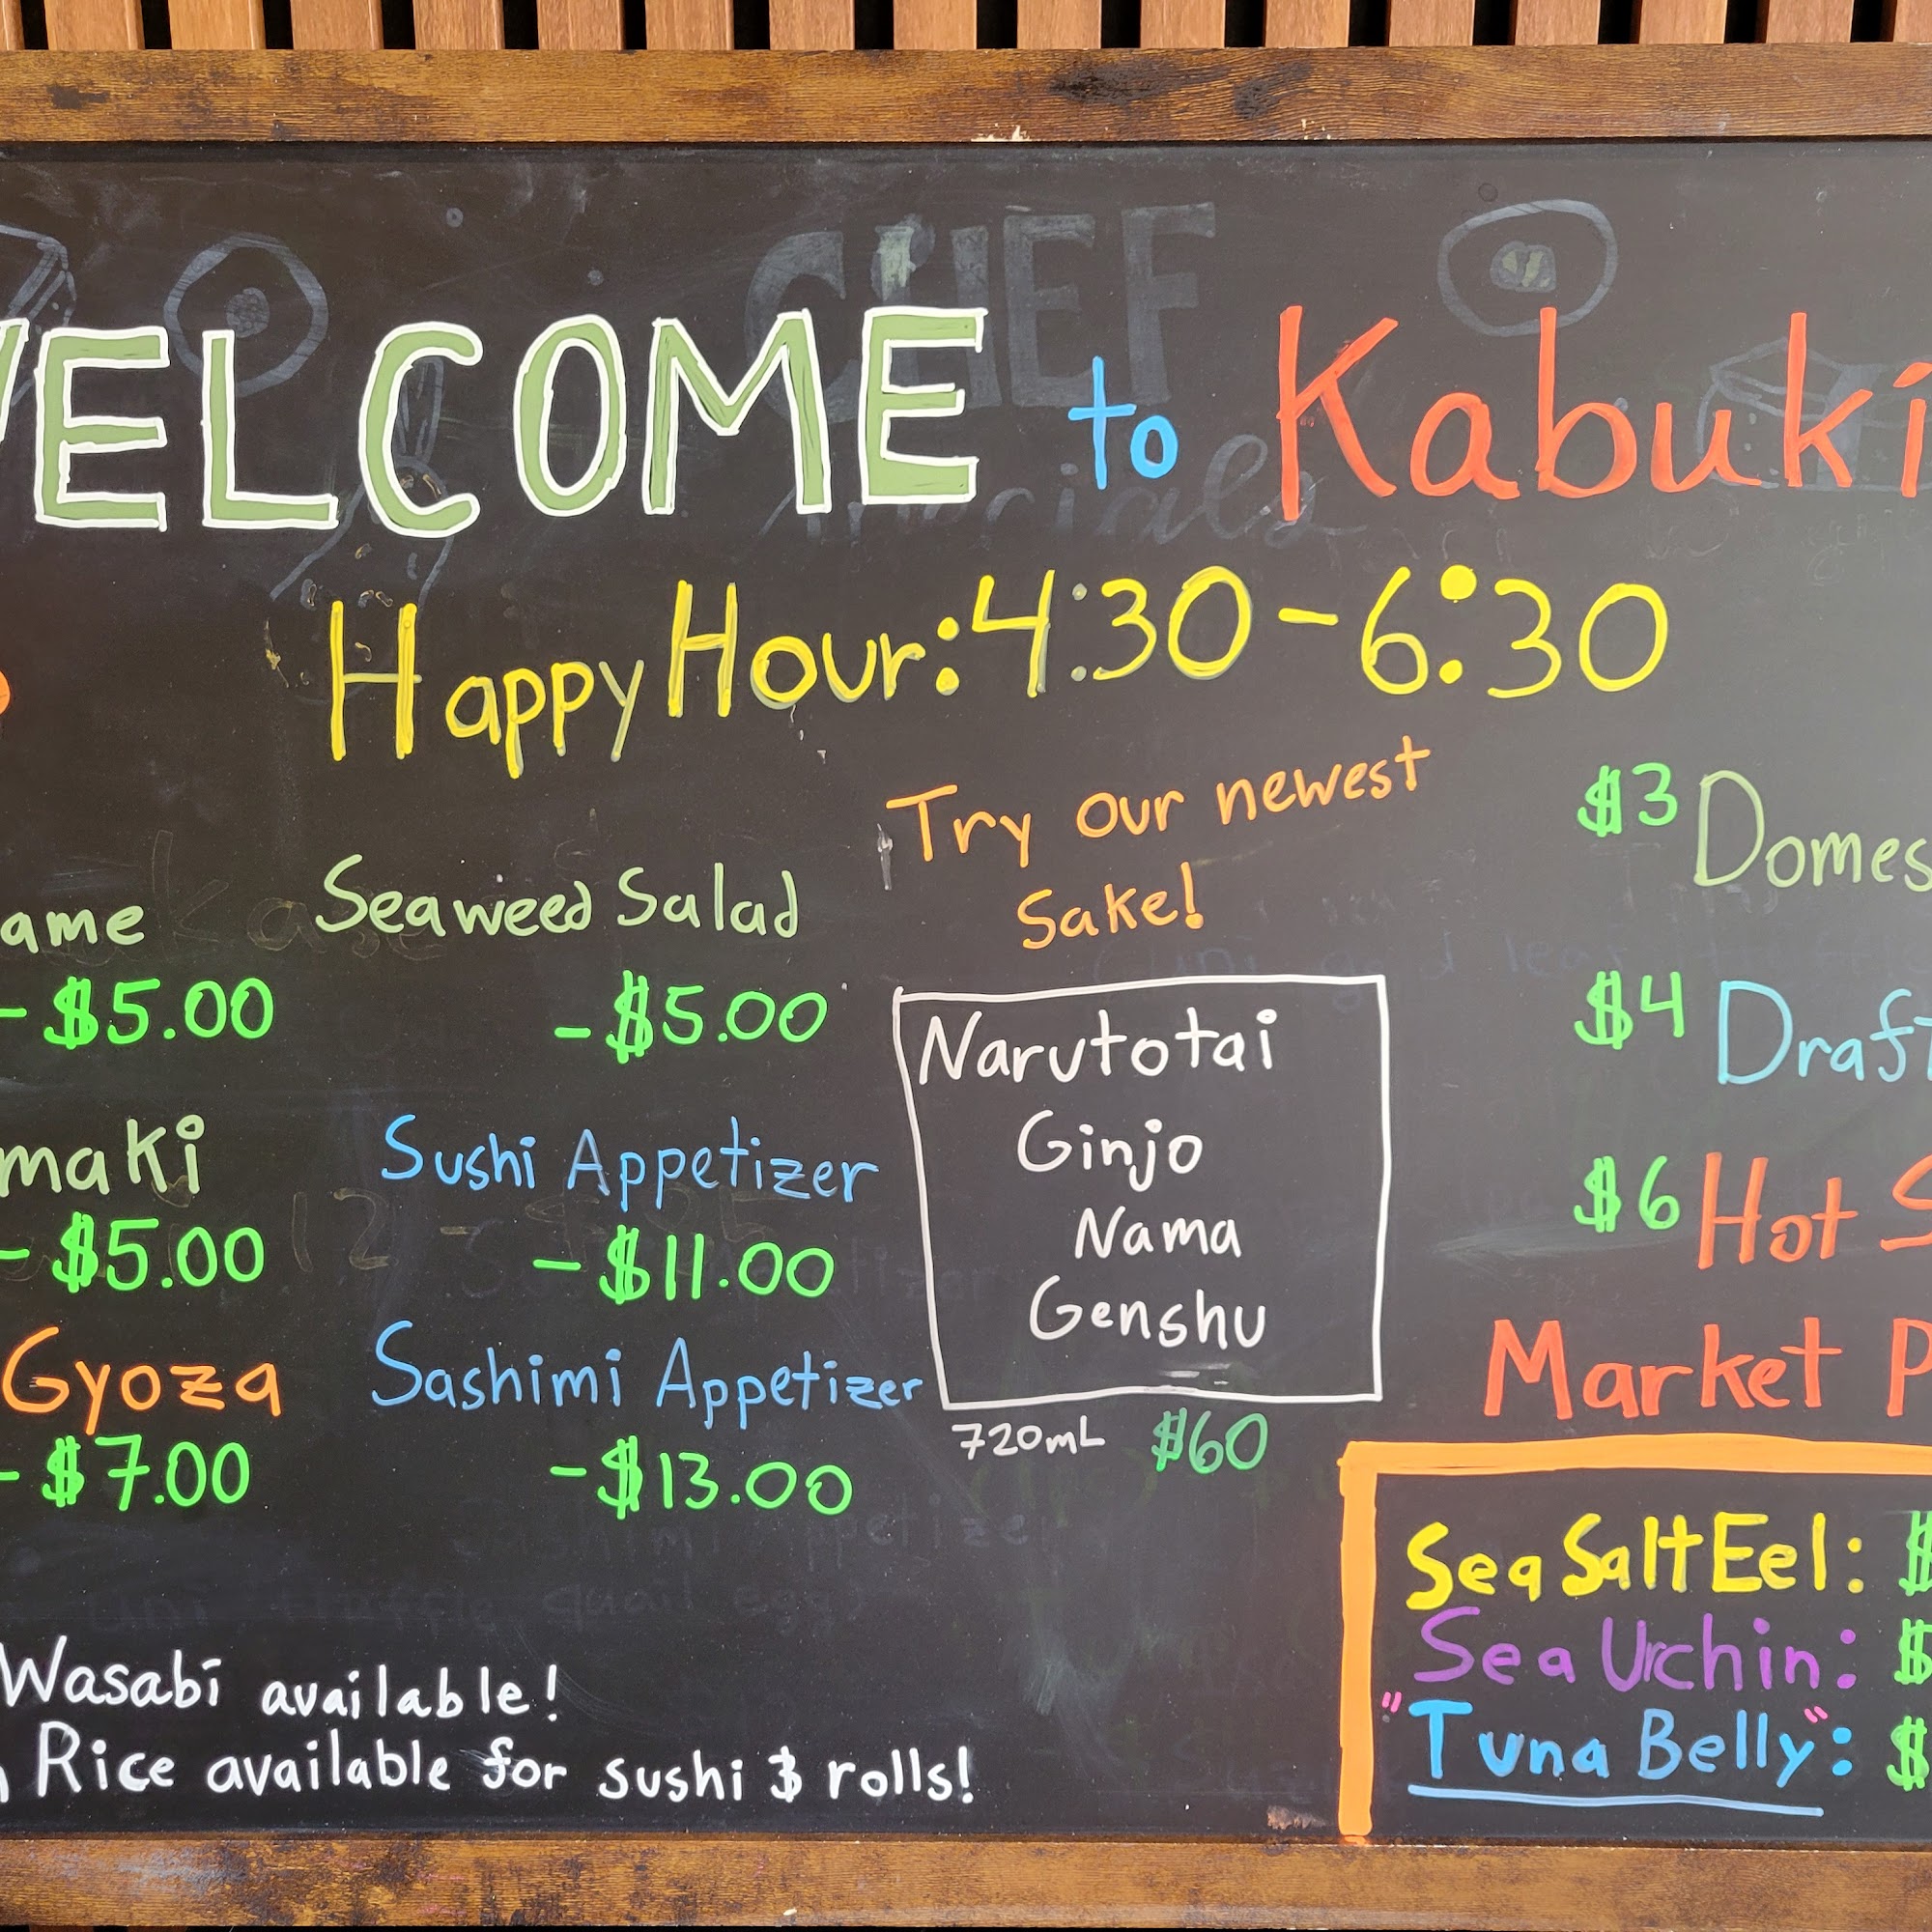 WELCOME to Kabuki
Happy Hour: 4:30 - 6:30
Try our newest
Sake!
Seaweed Salad
- $5.00
- $5.00
Sushi Appetizer
- $5.00
- $11.00
Gyoza
Sashimi Appetizer
- $7.00
- $13.00
Narutotai
Ginjo
Nama
Genshu
720mL $60
$3
$4 Draft
$6 Hot
Market
Sea Salt Eel: $
Sea Urchin: $
"Tuna Belly": $
Wasabi available!
Rice available for sushi & rolls!
CHEF
Specials